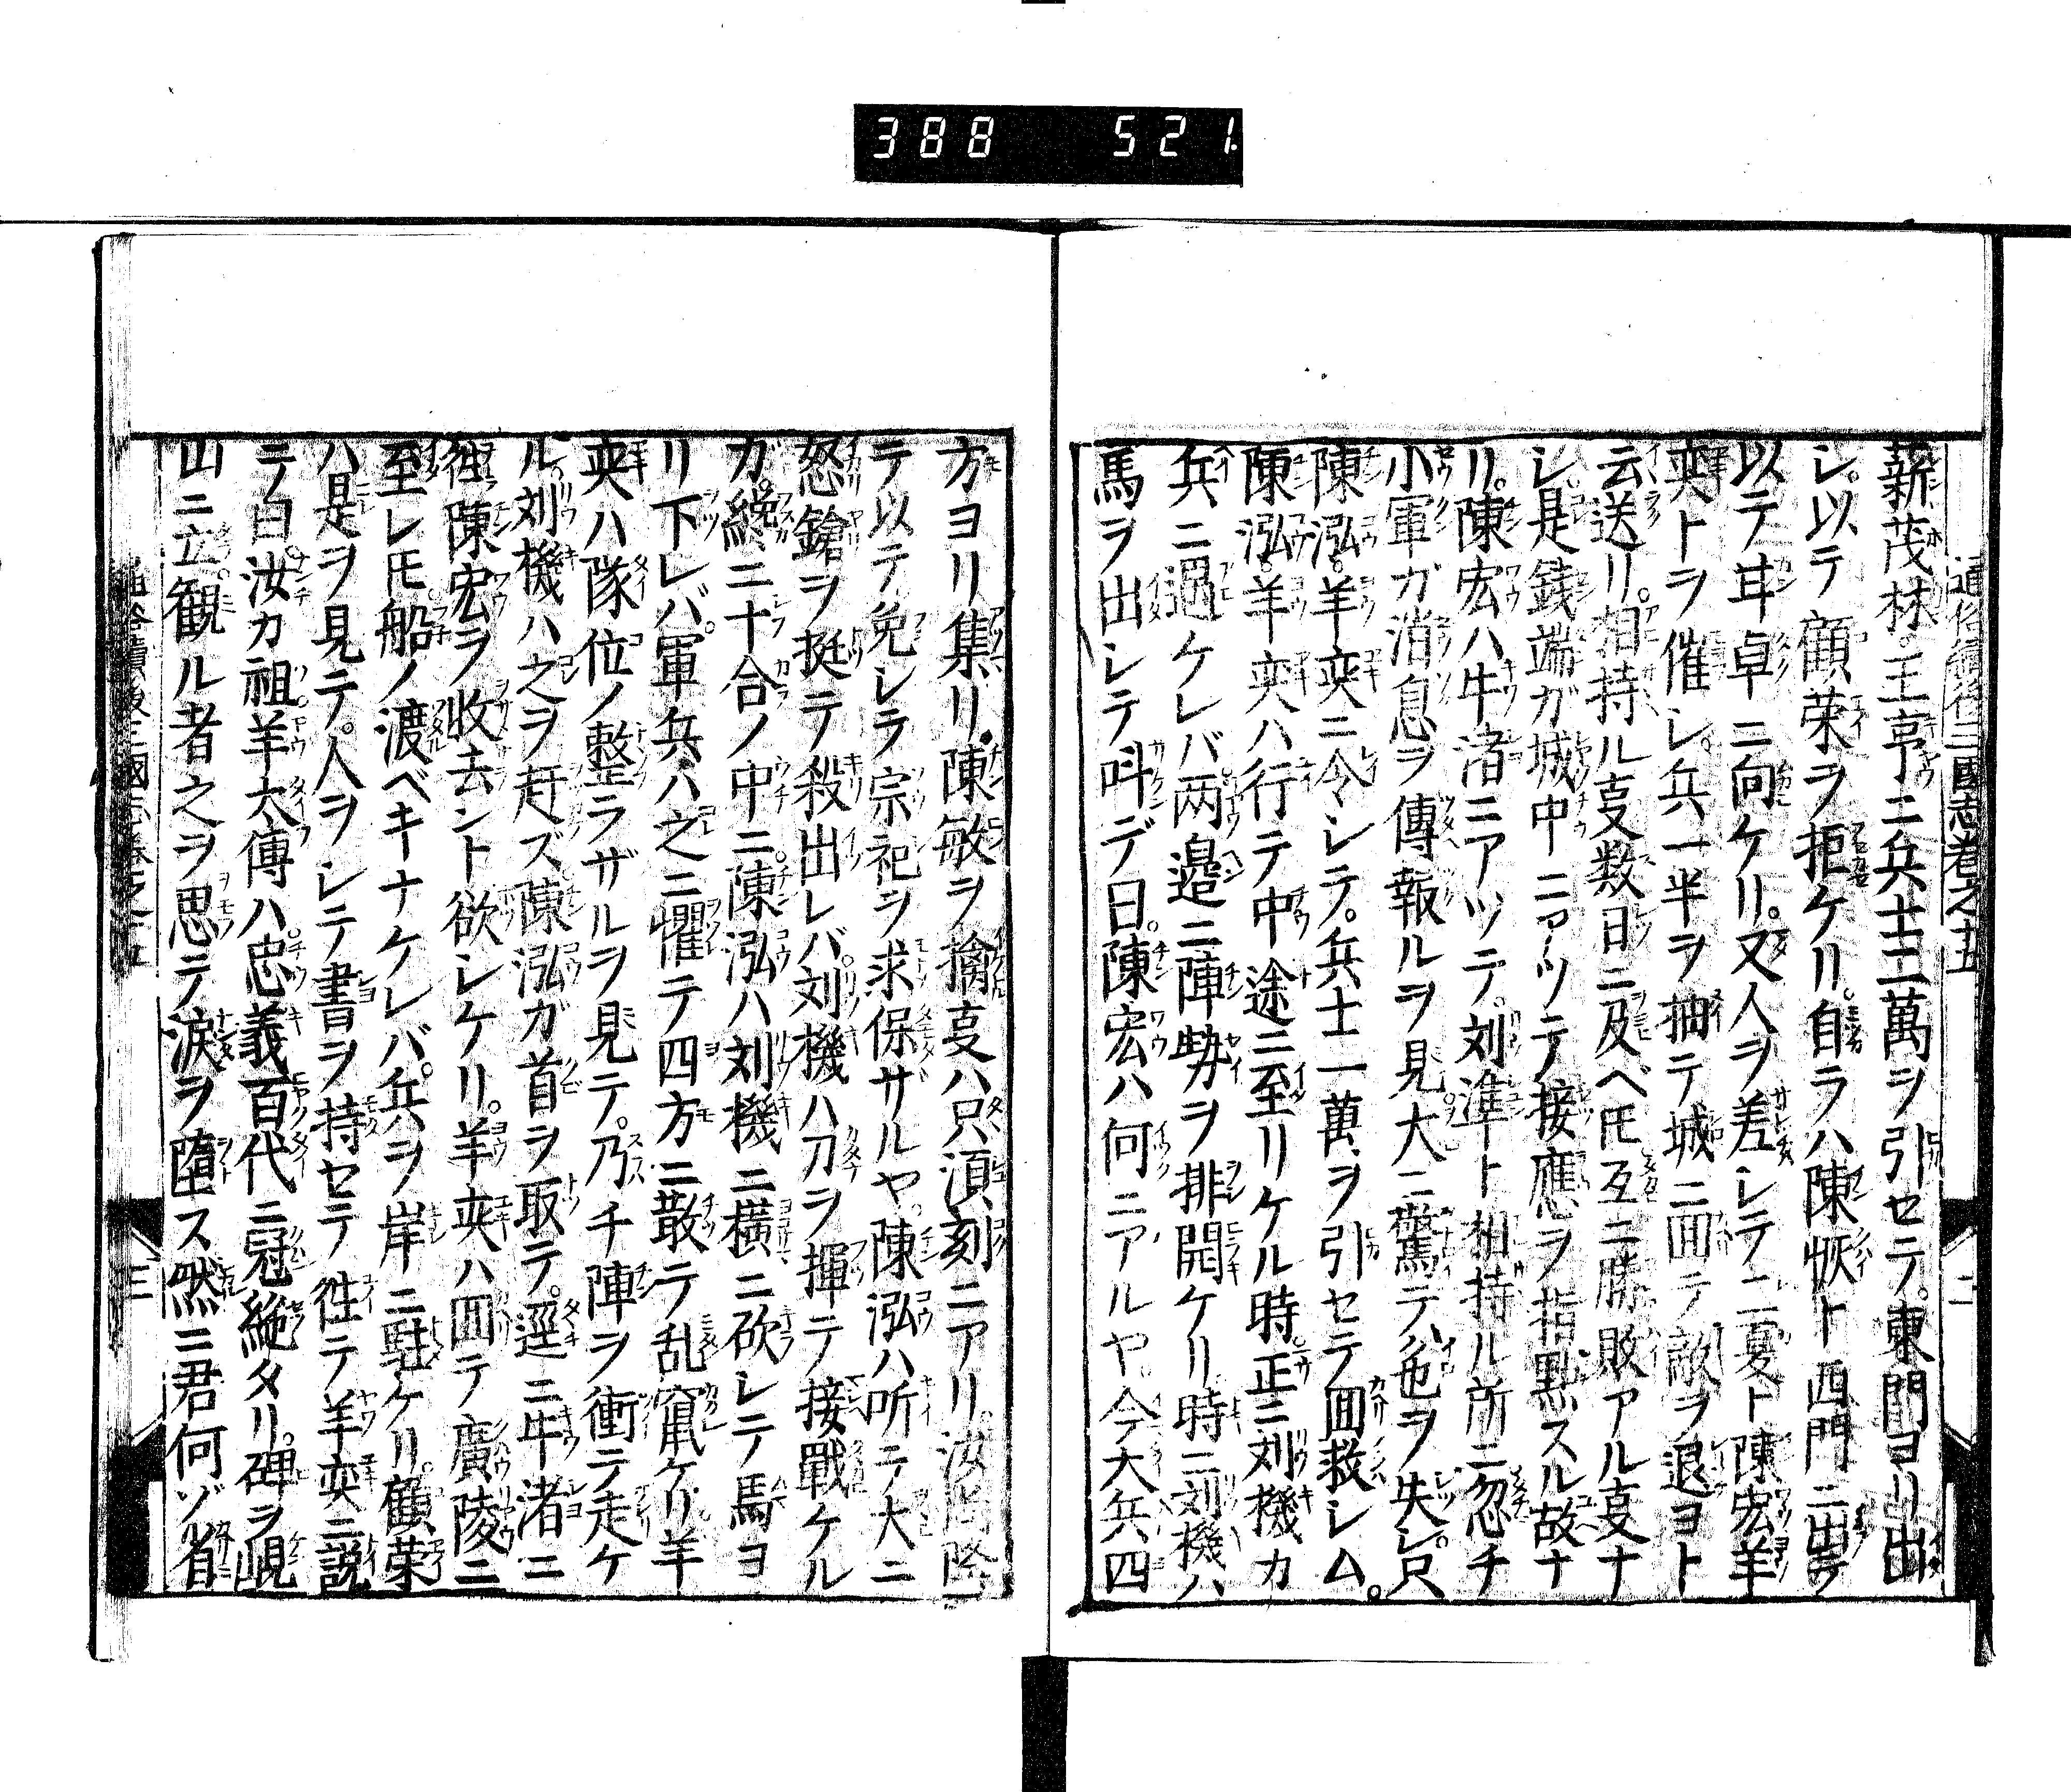 388 521
通俗續後三國志卷之十五
二
薪茂林。王亨ニ兵士二萬ヲ引セテ。東門ヨリ出
シ。以テ顧荣ヲ拒ケリ。自ラハ陳恢ト西門ニ出テ
以テ甘卓ニ向ケリ。又人ヲ差シテ二夏ト陳宏羊
奕トヲ催シ。兵一半ヲ抽テ城ニ回テ敵ヲ退ヨト
云送リ。相持ル𫝆数日ニ及ベ𪜈互ニ勝敗アル𫝆ナ
シ。是銭端ガ城中ニアツテ接應ヲ指㸃スル故ナ
リ。陳宏ハ牛渚ニアツテ。刘準ト相持ル所ニ忽チ
小軍ガ消息ヲ傳報ルヲ見大ニ驚テ色ヲ失シ。只
陳泓。羊奕ニ令シテ。兵士一萬ヲ引セテ回救シム。
陳泓。羊奕ハ行テ中途ニ至リケル時。正ニ刘機カ
兵ニ遇ケレバ两邉ニ陣勢ヲ排開ケリ時ニ刘機ハ
馬ヲ出シテ呌デ曰。陳宏ハ何ニアルヤ。今大兵四
方ヨリ集リ。陳敏ヲ擒𫝆ハ只湏刻ニアリ。汝
テ以テ免レラ宗祀ヲ求保ザルヤ。陳泓ハ听テ大ニ
怒鎗ヲ挺テ殺出レバ。刘機ハ刀ヲ揮テ接戰ケル
ガ。纔ニ十合ノ中ニ。陳泓ハ刘機ニ橫ニ砍レテ馬ヨ
リ下レバ。軍兵ハ之ニ懼テ四方ニ散テ乱竄ケリ羊
奕ハ隊位ノ整ラザルヲ見テ。乃チ陣ヲ衝テ走ケ
ル。刘機ハ之ヲ赶ズ陳泓ガ首ヲ取テ。逕ニ牛渚ニ
徃陳宏ヲ收去ント欲シケリ。羊奕ハ回テ廣陵ニ
至レ𪜈船ノ渡ベキナケレバ。兵ヲ岸ニ駐ケリ。顧荣
ハ是ヲ見テ。人ヲシテ書ヲ持セテ徃テ羊奕ニ說
テ曰。汝カ祖羊太傳ハ。忠義百代ニ冠絶タリ。碑ヲ峴
山ニ立。観ル者之ヲ思テ涙ヲ墮ス然ニ君何ゾ省
通俗續後三國志卷之十五
三